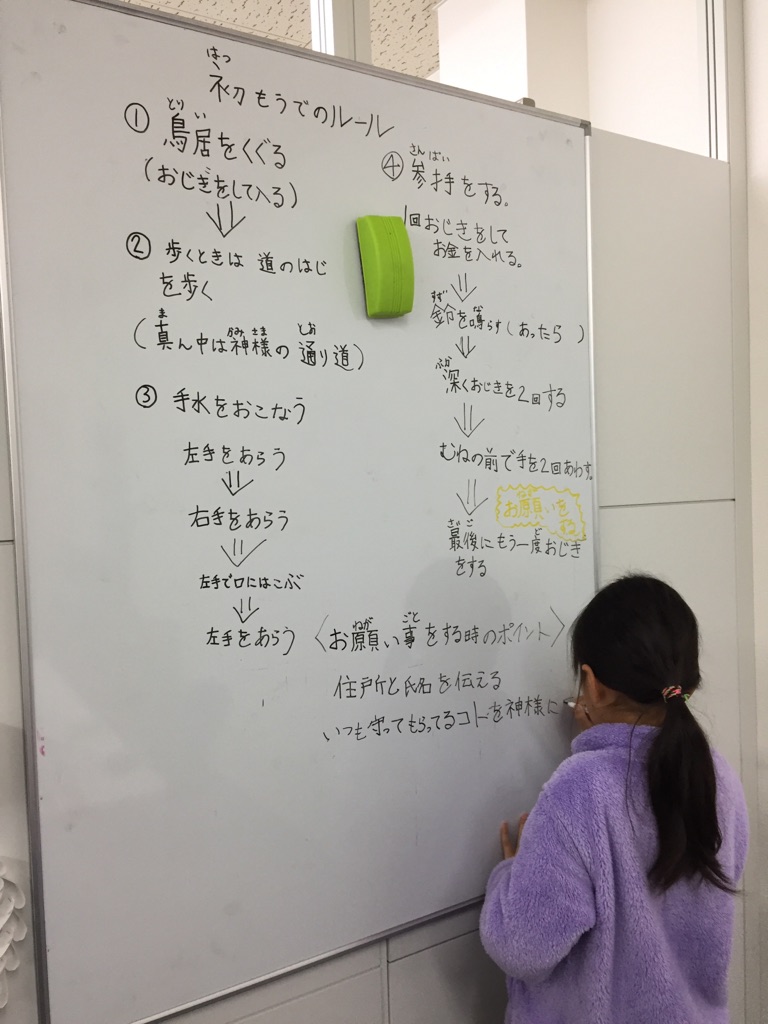 初もうでのルール
はつ
① 鳥居をくぐる
とり い
(おじぎをして入る)
⇓
② 歩くときは 道のはじ
を歩く
(真ん中は神様の 通り道)
ま かみ さま とお
③ 手水をおこなう
左手をあらう
⇓
右手をあらう
⇓
左手で口にはこぶ
⇓
左手をあらう
④ 参拝をする。
さん ぱい
1回おじぎをして
お金を入れる。
⇓
鈴を鳴らす(あったら )
すず
⇓
深くおじぎを2回する
ふか
⇓
むねの前で手を2回あわす。
⇓
お願いを
ねが
する
最後にもう一度おじぎ
さい ご ど
をする
〈お願い事をする時のポイント〉
ねが ごと
住所と氏名を伝える
いつも守ってもらってるコトを神様に